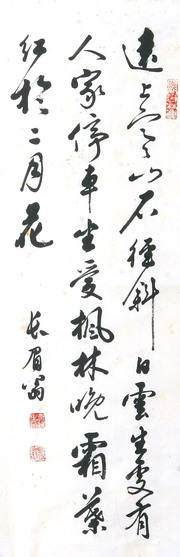 遠上寒山石徑斜白雲生處有
人家停車坐愛楓林晚霜葉
紅於二月花
長眉翁